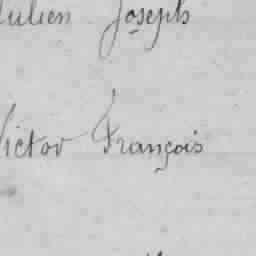 Julien Joseph
Victor François